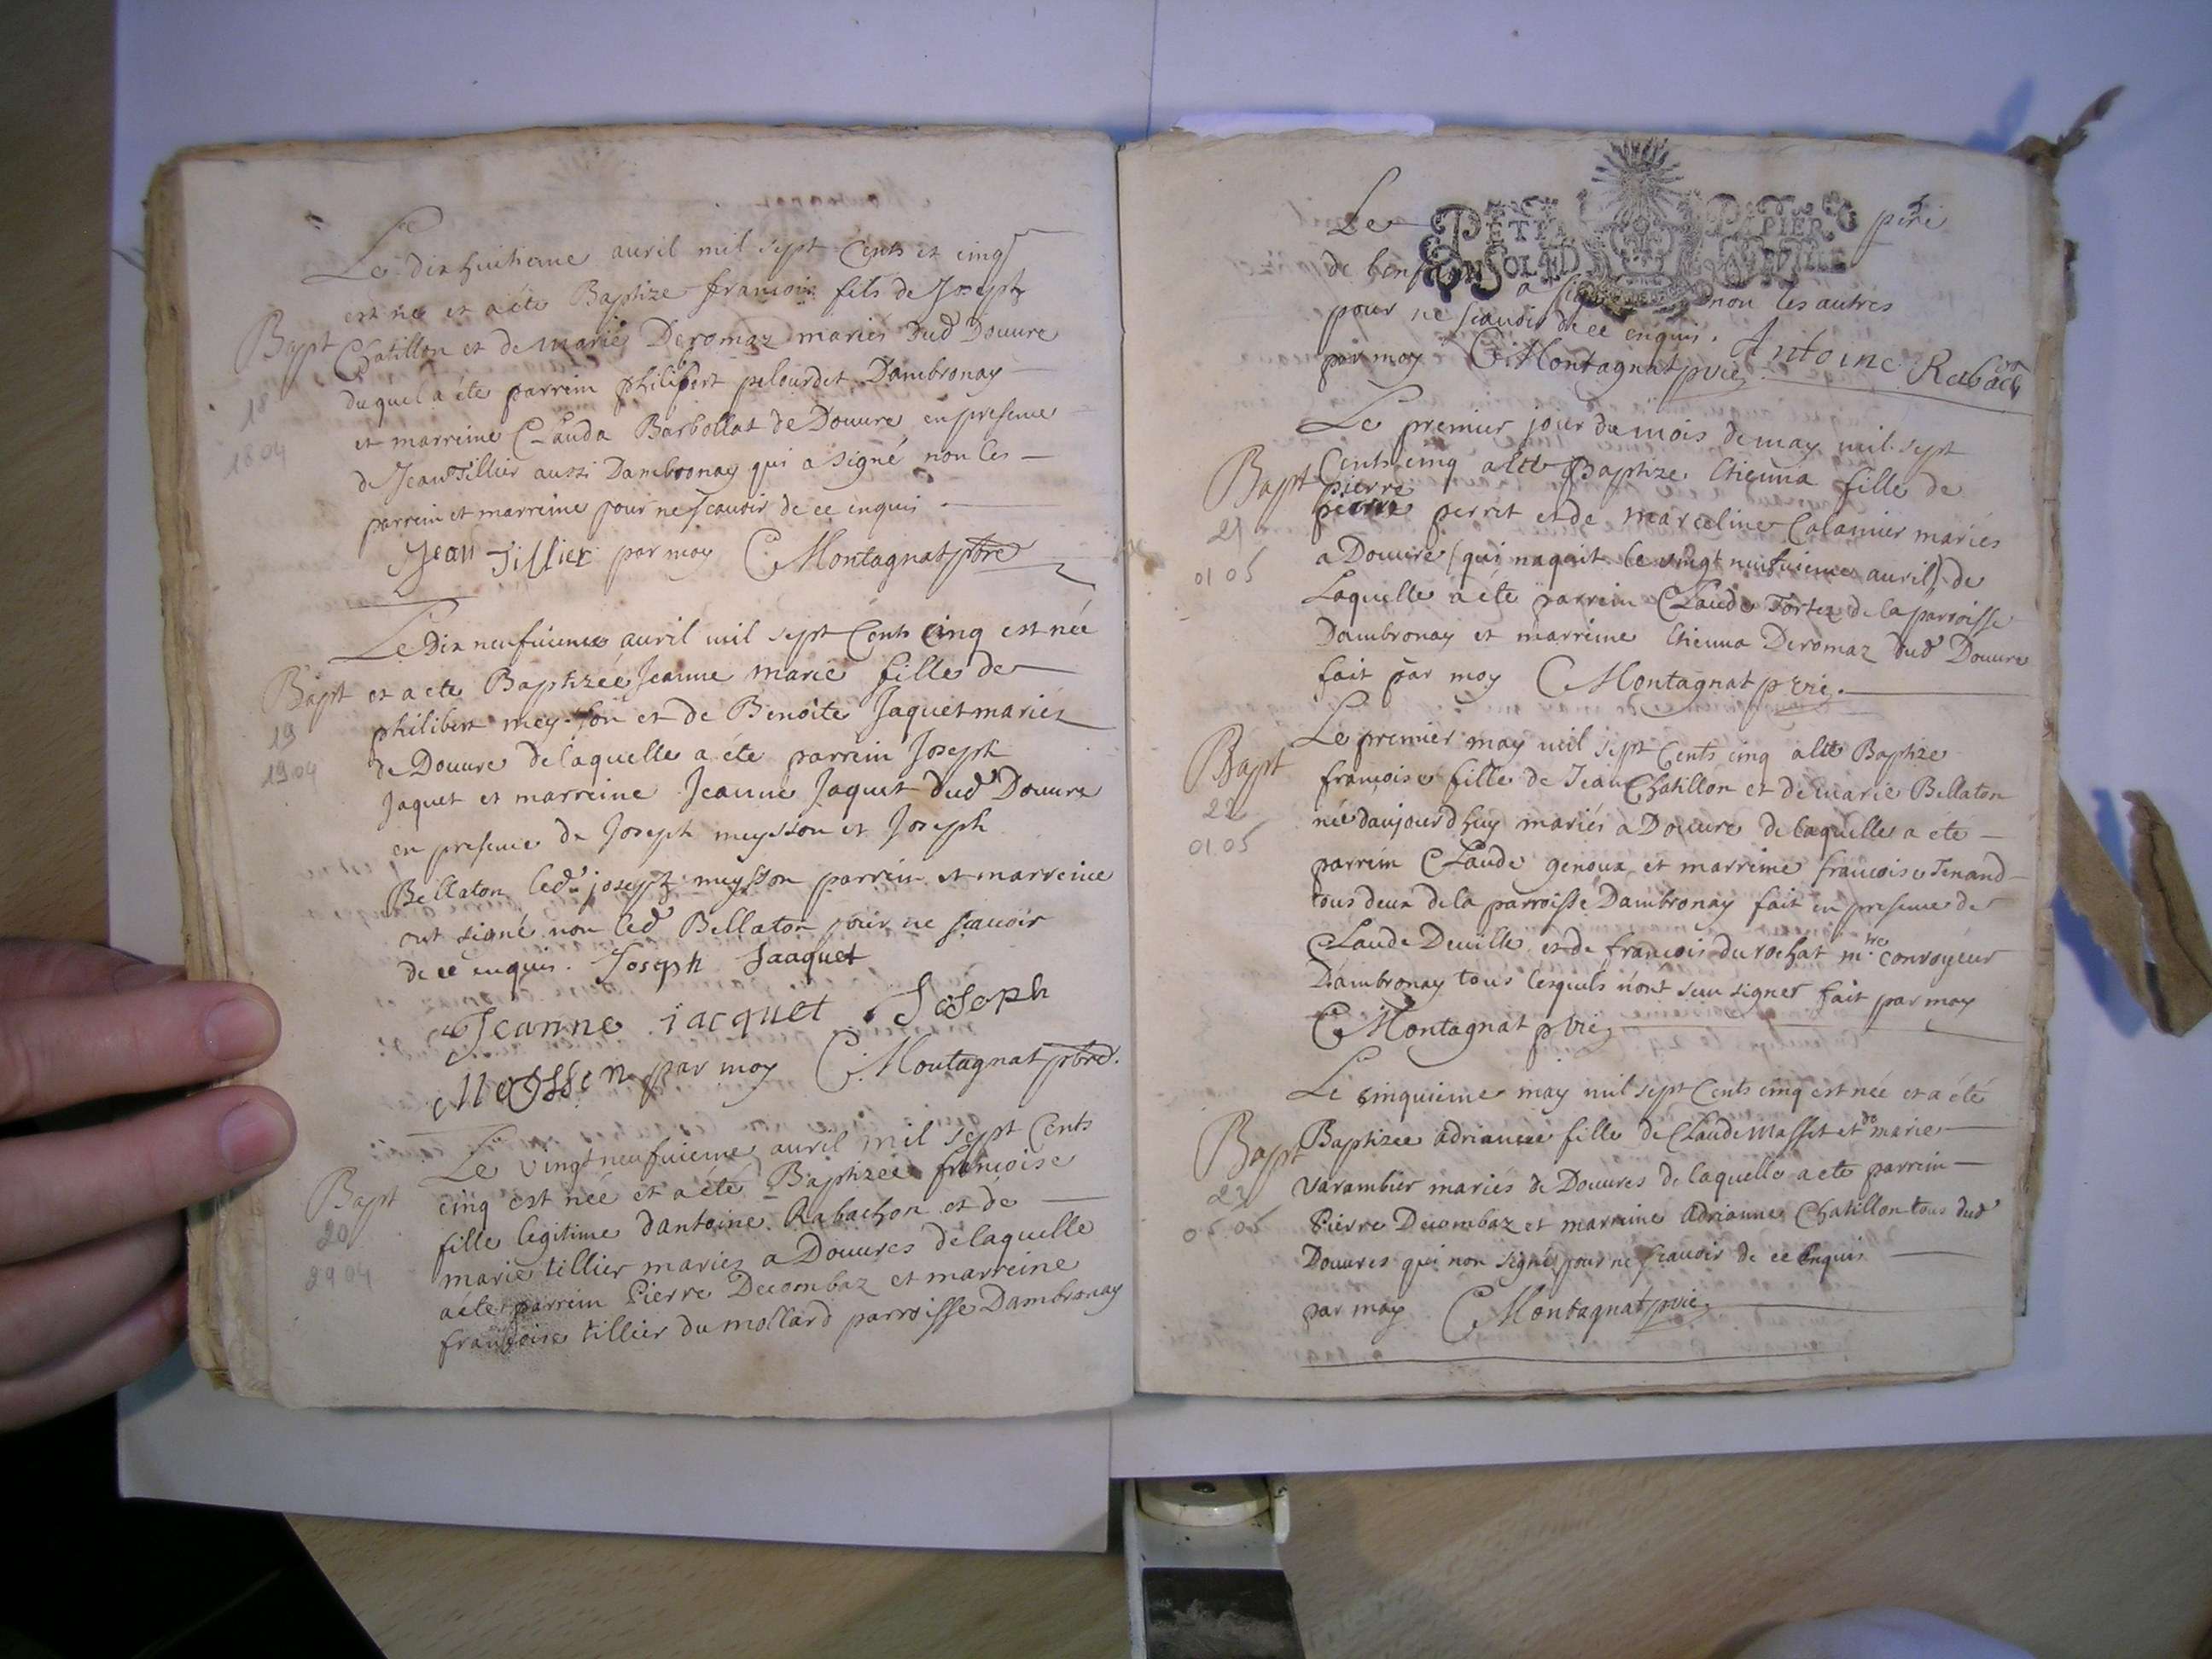 Le dixhuitieme avril mil sept Cents et cinq
est né et a été Baptize francois fils de Joseph
Bapt Chatillon et de marie Deromaz mariés dud Douvre
duquel a été parrein philibert pelourdet Dambronay
18 et marreine Clauda Barbollat de Douvre en presence
1804 de Jean Tillier aussi Dambronay qui a signé non les
parrein et marreine pour ne scavoir de ce enquis
Jean Tillier par moy C Montagnat pbre
Le Dix neufuieme avril mil sept Cents Cinq est née
Bapt et a ete Baptizée Jeanne marie fille de
philibert meysson et de Benoite Jaquet mariés
19 de Douvre de laquelle a été parrein Joseph
1904 Jaquet et marreine Jeanne Jaquet dud Douvre
en presence de Joseph meysson et Joseph
Bellaton led. joseph meysson parrein et marreine
ont signé non led Bellaton pour ne scavoir
de ce enquis. Joseph Jaaquet
Jeanne iacquet Joseph
Meyssen par moy C. Montagnat pbre.
Le vingt neufuieme avril mil sept Cents
Bapt cinq est née et a été Baptizee francoise
20 fille legitime dantoine Rabachon et de
2904 marie tillier mariés a Douvres de laquelle
a été parrein Pierre Decombaz et marreine
francoise tillier du mollard parroisse Dambronay
Le père
PETIT PAPIER
de
UN SOL
a signé non les autres
pour ne scavoir de ce enquis.
par moy C Montagnat pbre Antoine Rabach
Le premier jour du mois de may mil sept
Bapt Cents cinq a été Baptize Etienna fille de
pierre
21 pierre perret et de marceline Colamier mariés
0105 a Douvre (qui naquit le vingt neufuieme avril) de
Laquelle a été parrein Claude Tortez de la parroisse
Dambronay et marreine Etienna Deromaz dud Douvre
fait par moy C Montagnat pbre.
Le premier may mil sept Cents cinq a été Baptize
Bapt francoise fille de Jean Chatillon et de marie Bellaton
22 née daujourdhuy mariés a Douvre de laquelle a été
0105 parrein Claude genoux et marreine francoise Tenand
tous deux de la parroisse Dambronay fait en presence de
Claude Deville et de francois durochat mre convoyeur
Dambronay tous lesquels n'ont sceu signer fait par moy
C Montagnat pbre
Le cinquieme may mil sept Cents cinq est née et a été
Bapt Baptizee adrianne fille de Claude Massit et de marie
23 Varambier mariés de Douvres de laquelle a ete parrein
0505 Pierre Decombaz et marreine Adrianne Chatillon tous dud
Douvres qui non signé pour ne scavoir de ce enquis
par moy C Montagnat pbre